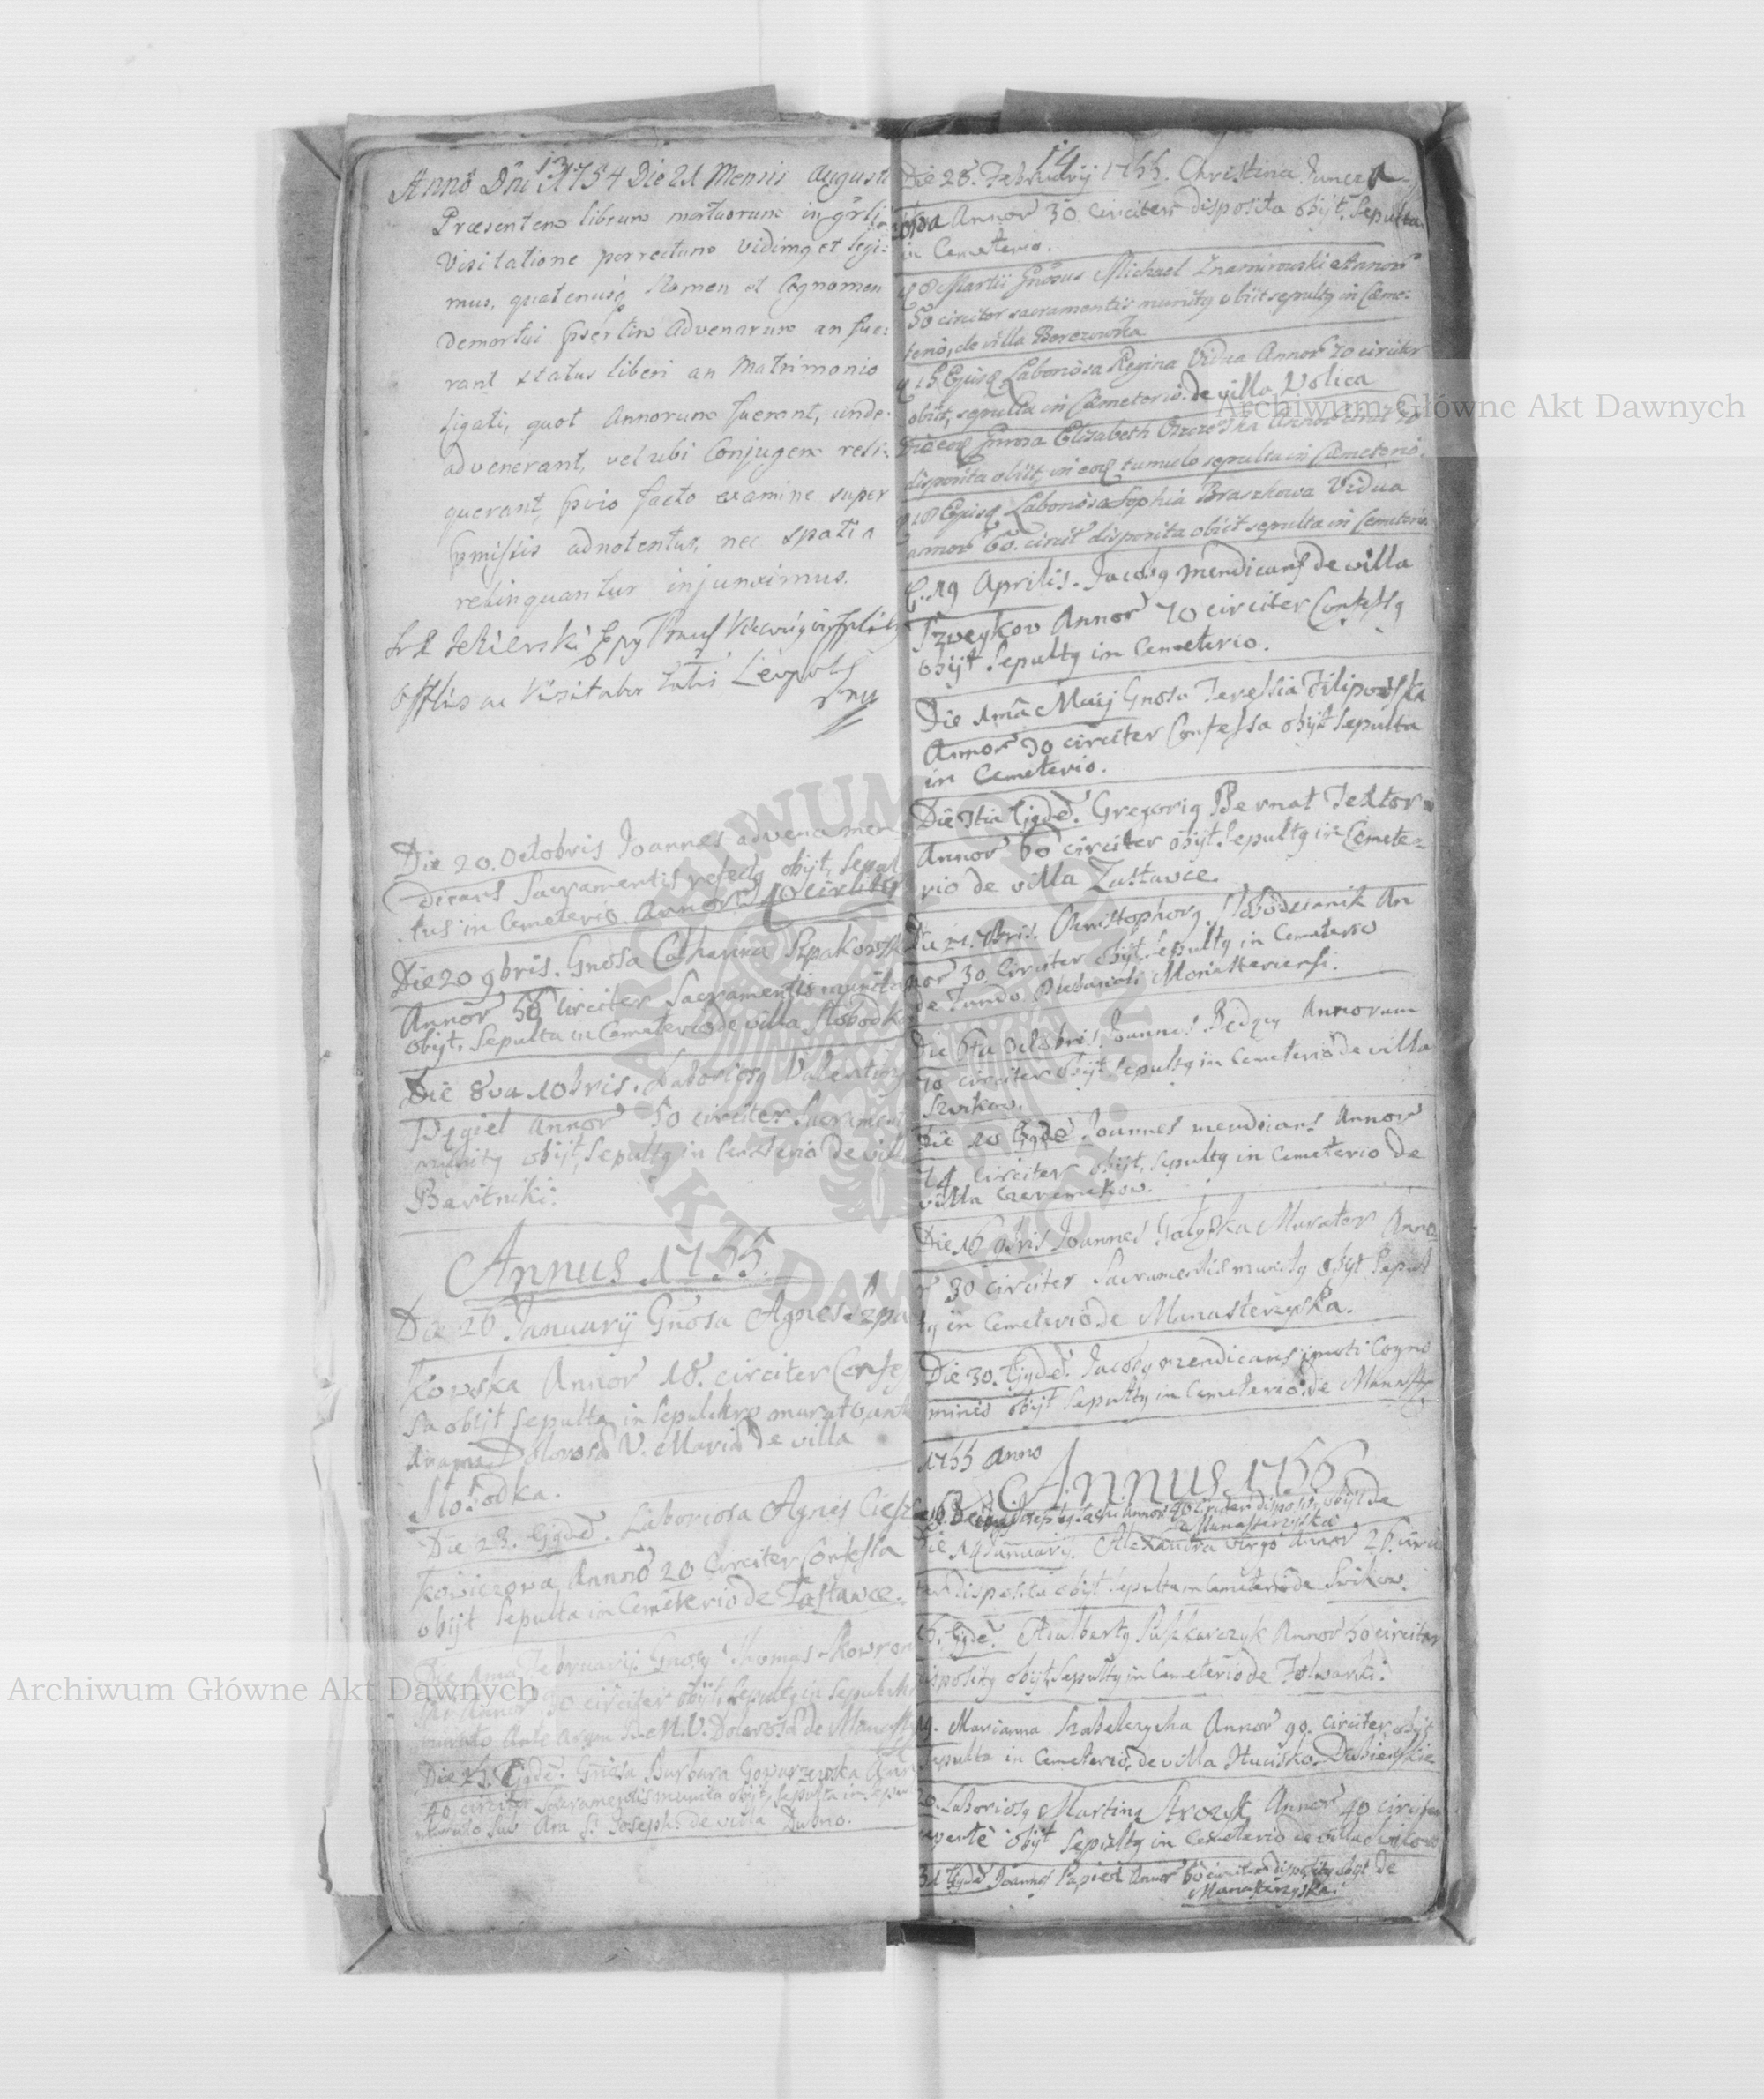 13
Anno Dni 1754 Die 21 Mensis Augusti
Præsentem librum mortuorum in grli
Visitatione porrectum vidimq et legi:
mus, quatenusq Nomen et Cognomen
demortui psertim advenarum an fue:
rant status liberi an Matrimonio
ligati, quot Annorum fuerant, unde
advenerant, vel ubi Conjugem reli:
querant, pvio facto examine super
pmissis adnotentur, nec spatia
relinquantur injunximus.
Visitator Leopol
Die 20. Octobris Joannes advena men
dicans Sacramentis refectq obijt, Sepul
tus in Cemeterio Annor 40 circiter
Die 20 9bris. Gnosa Catharina Rzpakowsk
Annor 50 circiter Sacramentis munita
obijt, Sepulta in Cemeterio de villa Slobodka
Die 8va 10bris. Laboriosq Valentinq
Węgiel Annor 50 circiter Sacrament
munitq obijt, Sepultq in Cemeterio de vill
Bertniki.
Annus 1755.
Die 26 Januarij Gnosa Agnes Rzpa
kowska Annor 18. circiter Confes
sa obijt sepulta in Sepulchro murato, ante
Aram Dolorosa V. Maria de villa
Slobodka.
Die 23. Ejqde. Laboriosa Agnes Ciesz
kowiczowa Annor 20 circiter Confessa
obijt Sepulta in Cemeterio de Zastawce.
Die 1ma Februarij. Gnosq Thomas Skowron
ski Annor 30 circiter obijt, Sepultq in Sepulchr
murato Ante Aram B. M. V. Dolorosa de Manast
Die 25. Ejqde. Gnosa Barbara Goworzewska Ann
40 circiter Sacramentis munita obijt, Sepulta in Sepu
murato Sub Ara S. Joseph. de villa Dubno.
14
Die 28. Februarij 1755. Christina
Annor 30. circiter disposita obijt, Sepulta
in Cemeterio.
Martii Gnosus Michael Znamirowski Annor
50 circiter sacramentis munitq obiit sepultq in Cæme:
terio, de villa Berezowka
15 Ejusq Laboriosa Regina Vidua Annor 70 circiter
obiit, sepulta in Cæmeterio. de villa Wolica
Die eoq Gnrosa Elisabeth
disposita obiit, in eoq tumulo sepulta in Cæmeterio.
18 Ejusq Laboriosa Sophia Braszkowa Vidua
annor 60. circit disposita obiit sepulta in Cemeterio
D. 19 Aprilis. Jacobq mendicans de villa
Annor 70 circiter Confessq
obijt Sepultq in Cemeterio.
Die 1ma Maij Gnosa Teressia Filipowska
Annor 30 circiter Confessa obijt Sepulta
in Cemeterio.
Die 3tia Ejqde. Gregoriq Bernat Textor
Annor 60 circiter obijt. Sepultq in Cemete:
rio de villa Zastawce.
Die 21. 7bris. Christophorq Slobodzianik An
nor 30. circiter obijt. Sepultq in Cemeterio
de Fundo Plebaniali Monasteriensi.
Die 6ta Octobris Joannes Annorum
70 circiter obijt Sepultq in Cemeterio de villa
Szwikow.
Die 10 Ejqde Joannes mendicans Annor
74 circiter obijt, Sepultq in Cemeterio de
villa Czeremchow.
Die 16 9bris Joannes Murator Anno
r 30 circiter Sacramentis munitq obijt Sepul
tq in Cemeterio de Manasterzyska.
Die 30. Ejqde. Jacobq mendicans ignoti Cogno
minis obijt Sepultq in Cemeterio. de Manast
1755 Anno
Annus 1756
Josephq Annor 40 circiter dispositq obijt de
Manasterzyska
Die 14 Januarij. Alexandra virgo Annor 25. circi
ter disposita obijt Sepulta in Cemeterio de Swikow.
Ejqde. Adalbertq Puszkarczyk Annor 50 circiter
dispositq obijt, Sepultq in Cemeterio de Folwarki.
19. Marianna Szabelczycha Annor 90. circiter obijt
Sepulta in Cemeterio. de villa Huciska Dubienskie
20. Laboriosq Martinq Annor 40 circiter
repente obijt Sepultq in Cemeterio de villa
31 Ejqde Joannes Papiesz Annor 60 circiter dispositq obijt de
Manasterzyska.
Archiwum Główne Akt Dawnych
Archiwum Główne Akt Dawnych
ARCHIWUM GŁÓWNE
AKT DAWNYCH